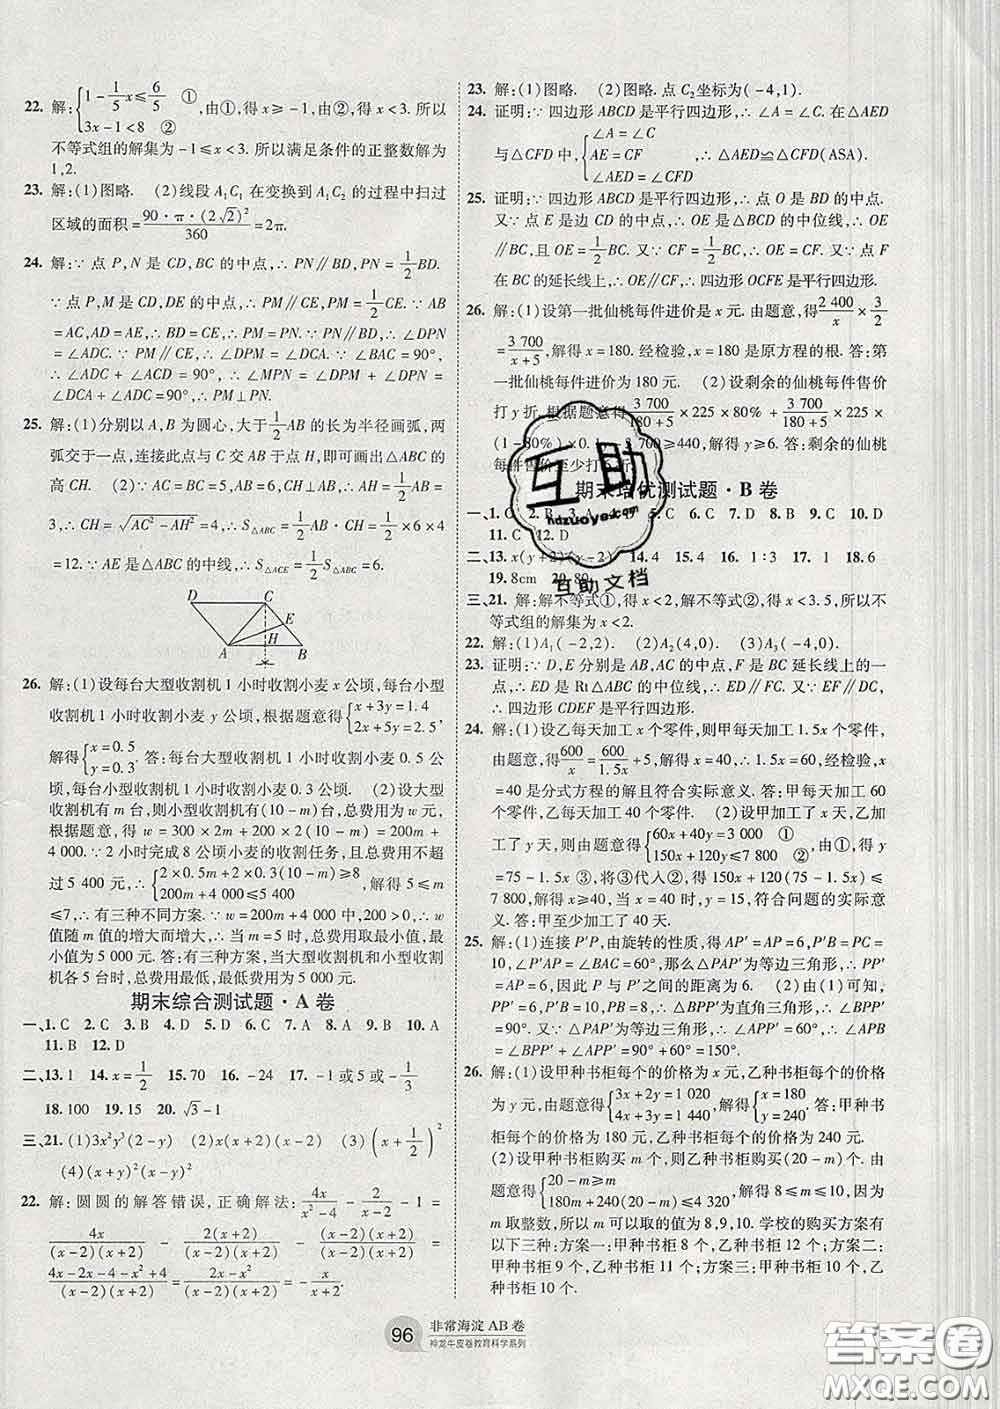 22. 解:{1-1/5x≤6/5 ① 3x-1<8 ②,由①,得 x≥-1,由②,得 x<3. 所以
不等式组的解集为-1≤x<3. 所以满足条件的正整数解为
1,2.
23. 解:(1)图略. (2)线段 A₁C₁ 在变换到 A₁C₂ 的过程中扫过
区域的面积=90·π·(2√2)²/360=2π.
24. 解:∵点 P,N 是 CD,BC 的中点,∴PN∥BD,PN=1/2BD.
∵点 P,M 是 CD,DE 的中点,∴PM∥CE,PM=1/2CE. ∵AB
=AC,AD=AE,∴BD=CE,∴PM=PN. ∵PN∥BD,∴∠DPN
=∠ADC. ∵PM∥CE,∴∠DPM=∠DCA. ∵∠BAC=90°,
∴∠ADC+∠ACD=90°,∴∠MPN=∠DPM+∠DPN=
∠DCA+∠ADC=90°,∴PM⊥PN.
25. 解:(1)分别以 A,B 为圆心,大于1/2AB 的长为半径画弧,两
弧交于一点,连接此点与 C 交 AB 于点 H,即可画出△ABC 的
高 CH. (2)∵AC=BC=5,AB=6,CH⊥AB,∴AH=1/2AB=
3,∴CH=√(AC²-AH²)=4,∴S△ABC=1/2AB·CH=1/2×6×4
=12. ∵AE 是△ABC 的中线,∴S△ACE=1/2S△ABC=6.
D C
E
H
A B
26. 解:(1)设每台大型收割机 1 小时收割小麦 x 公顷,每台小型
收割机 1 小时收割小麦 y 公顷,根据题意得{x+3y=1.4 2x+5y=2.5,
解得{x=0.5 y=0.3. 答:每台大型收割机 1 小时收割小麦 0.5 公顷,
每台小型收割机 1 小时收割小麦 0.3 公顷. (2)设大型
收割机有 m 台,则小型收割机有(10-m)台,总费用为 w 元,
根据题意,得 w=300×2m+200×2(10-m)=200m+
4 000. ∵2 小时完成 8 公顷小麦的收割任务,且总费用不超
过 5 400 元,∴{2×0.5m+2×0.3(10-m)≥8 200m+4 000≤5 400,解得 5≤m
≤7,∴有三种不同方案. ∵w=200m+4 000 中,200>0,∴w
值随 m 值的增大而增大,∴当 m=5 时,总费用取最小值,最
小值为 5 000 元. 答:有三种方案,当大型收割机和小型收割
机各 5 台时,总费用最低,最低费用为 5 000 元.
期末综合测试题·A 卷
一、1. C 2. C 3. B 4. D 5. D 6. D 7. C 8. A 9. B 10. A
11. B 12. D
二、13. 1 14. x=1/2 15. 70 16. -24 17. -1或5或-1/3
18. 100 19. 15 20. √3-1
三、21. (1)3x²y³(2-y) (2)x(x+2)(x-2) (3)(x+1/2)²
(4)(x+y)²(x-y)²
22. 解:圆圆的解答错误,正确解法:4x/(x²-4)-2/(x-2)-1=
4x/((x-2)(x+2))-2(x+2)/((x-2)(x+2))-(x-2)(x+2)/((x-2)(x+2))=
(4x-2x-4-x²+4)/((x-2)(x+2))=(2x-x²)/((x-2)(x+2))=-x/(x+2).
23. 解:(1)图略. (2)图略. 点 C₂坐标为(-4,1).
24. 证明:∵四边形 ABCD 是平行四边形,∴∠A=∠C. 在△AED
与△CFD 中,{∠A=∠C AE=CF ∠AED=∠CFD,∴△AED≌△CFD(ASA).
25. 证明:∵四边形 ABCD 是平行四边形,∴点 O 是 BD 的中点.
又∵点 E 是边 CD 的中点,∴OE 是△BCD 的中位线,∴OE
∥BC,且 OE=1/2BC. 又∵CF=1/2BC,∴OE=CF. 又∵点 F
在 BC 的延长线上,∴OE∥CF,∴四边形 OCFE 是平行四边形.
26. 解:(1)设第一批仙桃每件进价是 x 元. 由题意,得2 400/x×3/2
=3 700/(x+5),解得 x=180. 经检验,x=180 是原方程的根. 答:第
一批仙桃每件进价为 180 元. (2)设剩余的仙桃每件售价
打 y 折. 根据题意得3 700/(180+5)×225×80%+3 700/(180+5)×225×
(1-80%)×0.1y-3 700≥440,解得 y≥6. 答:剩余的仙桃
每件售价至少打6折.
期末培优测试题·B 卷
一、1. C 2. B 3. A 4. D 5. C 6. C 7. D 8. D 9. C 10. D
11. C 12. D
二、13. x(y+2)(y-2) 14. 4 15. 4 16. 1∶3 17. 1 18. 6
19. 8cm 20. 80
三、21. 解:解不等式①,得 x<2,解不等式②,得 x<3,所以不
等式组的解集为 x<2.
22. 解:(1)A₁(-2,2). (2)A₂(4,0). (3)A₃(-4,0).
23. 证明:∵D,E 分别是 AB,AC 的中点,F 是 BC 延长线上的一
点,∴ED 是 Rt△ABC 的中位线,∴ED∥FC. 又∵DC∥EF,
∴四边形 CDEF 是平行四边形.
24. 解:(1)设乙每天加工 x 个零件,则甲每天加工 1.5x 个零件,
由题意,得600/x=600/1.5x+5,解得 x=40,∴1.5x=60,经检验,x
=40 是分式方程的解且符合实际意义. 答:甲每天加工 60
个零件,乙每天加工 40 个零件. (2)设甲加工了 x 天,乙加
工了 y 天,则由题意得{60x+40y=3 000 ① 150x+120y≤7 800 ②,由①,得 y
=75-1.5x ③,将③代入②,得 150x+120(75-1.5x)≤
7 800,解得 x≥40,当 x=40 时,y=15,符合问题的实际意
义. 答:甲至少加工了 40 天.
25. 解:(1)连接 P'P,由旋转的性质,得 AP'=AP=6,P'B=PC=
10,∠P'AB=∠PAC,∴∠P'AP=∠BAC=60°,那么△PAP'为等边三角形,∴
PP'=6,因此 P 与 P'之间的距离为 6. (2)由(1)可知,
PP'=6,BP=8,P'B=PC=10,∴△BPP'为直角三角形,∴∠BPP'
=90°. 又∵△PAP'为等边三角形,∴∠APP'=60°,∴∠APB
=∠BPP'+∠APP'=90°+60°=150°.
26. 解:(1)设甲种书柜每个的价格为 x 元,乙种书柜每个的价格
为 y 元,由题意得{3x+2y=1 020 4x+3y=1 440,解得{x=180 y=240. 答:甲种书
柜每个的价格为 180 元,乙种书柜每个的价格为 240 元.
(2)设甲种书柜购买 m 个,则乙种书柜购买(20-m)个,由
题意得{20-m≥m 180m+240(20-m)≤4 320,解得 8≤m≤10,因为
m 取整数,所以 m 可以取的值为 8,9,10. 学校的购买方案有
以下三种:方案一:甲种书柜 8 个,乙种书柜 12 个;方案二:
甲种书柜 9 个,乙种书柜 11 个;方案三:甲种书柜 10 个,乙
种书柜 10 个.
96 非常海淀 AB 卷
神龙牛皮卷教育科学系列
互助
hdzuoye.com
互助文档
答案圈
MXQE.COM